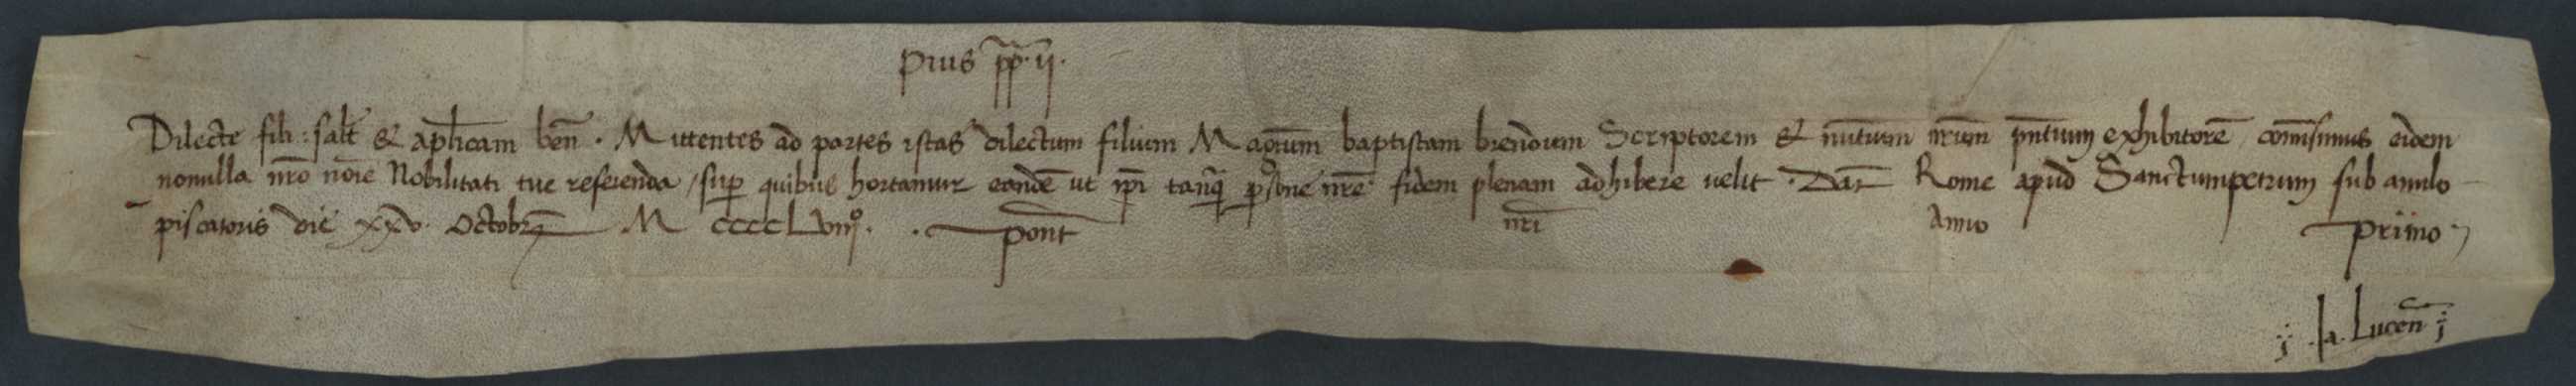 Pius pp. ii.
Dilecte fili: salt̄ & aplicam ben̄. Mittentes ad partes istas dilectum filium Magrum baptistam brendum Scriptorem & nūtium nr̄um pn̄tium exhibitorē, comīsimus eidem
nonulla nr̄o noīe Nobilitati tue referenda, sup quibus hortamur eandē ut ip̄i tanq̄ p̱sone nr̄e fidem plenam adhibere velit. Dat̄ Rome apud Sanctumpetrum sub anulo
piscatoris die xxv. Octobr̄ M CCCCLviij°. pont̄ nr̄i Anno primo
Ja. Lucen̄